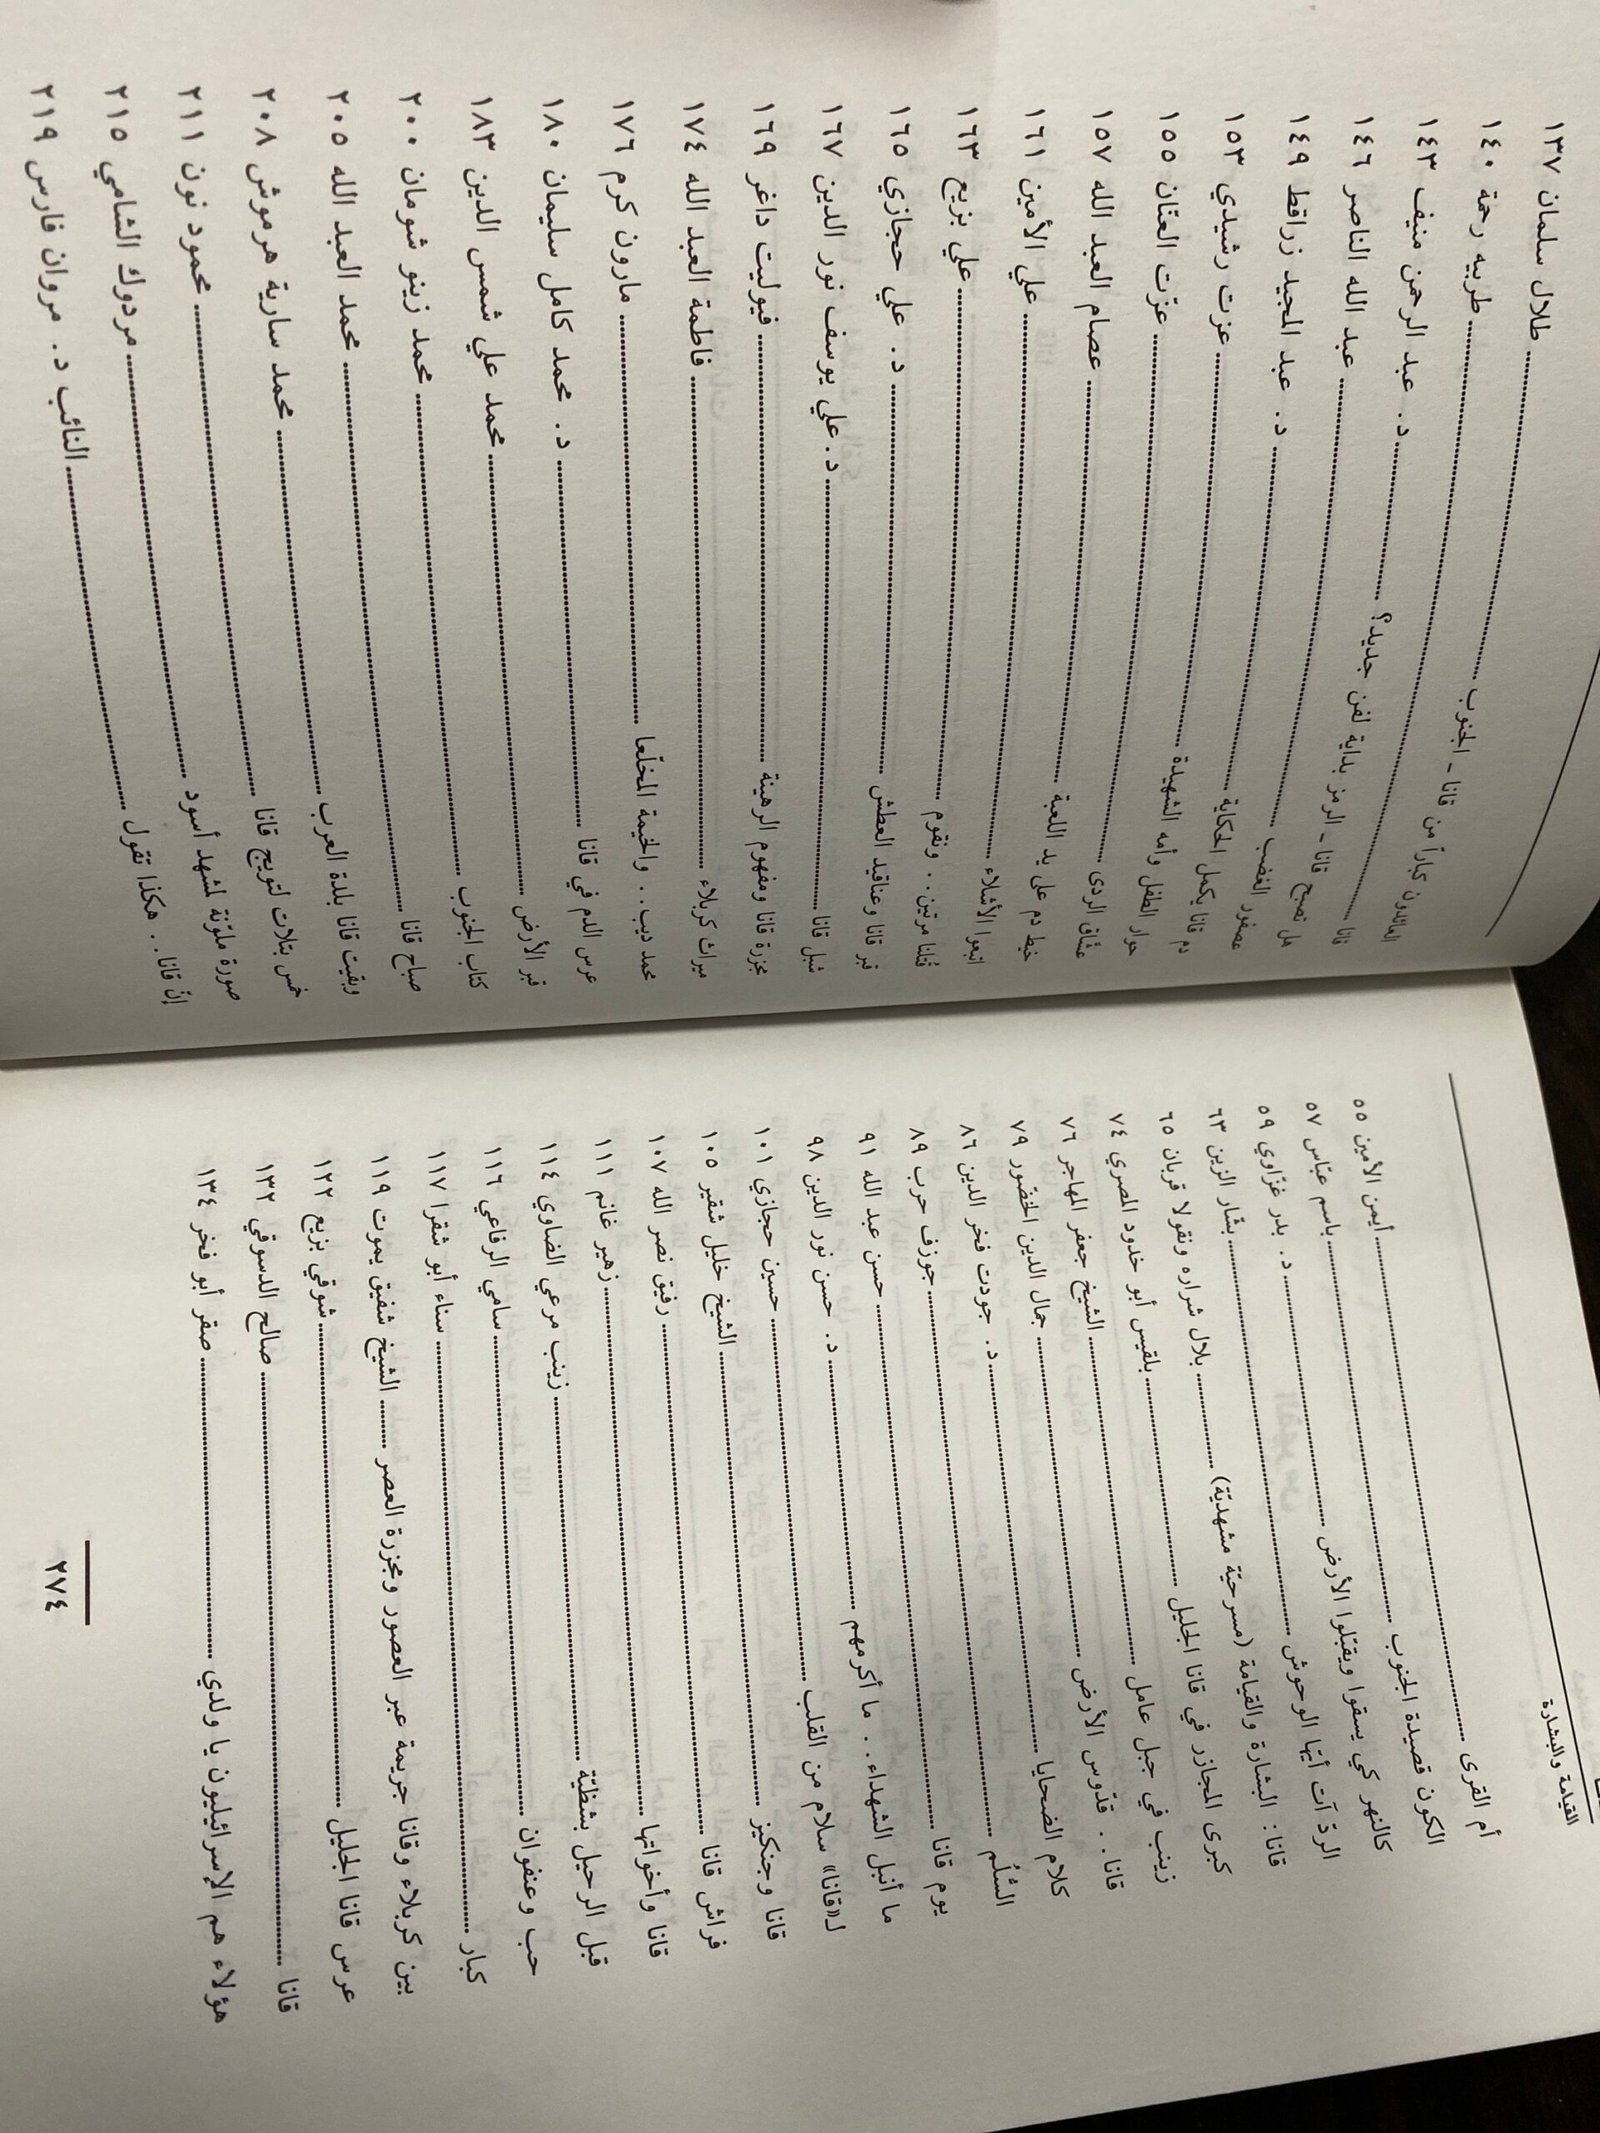 القيامة والبشارة
أم القرى ........ أيمن الأمين ٥٥
الكون قصيدة الجنوب ........ باسم عبّاس ٥٧
كالنهر كي يسقوا ويقبّلوا الأرض ........ د. بدر غزّاوي ٥٩
الردّ آت أيّها الوحوش ........ بشّار الزين ٦٣
قانا: البشارة والقيامة (مسرحيّة مشهديّة) ........ بلال شراره ونقولا قربان ٦٥
كبرى المجازر في قانا الجليل ........ بلقيس أبو خدود المصري ٧٤
زينب في جبل عامل ........ الشيخ جعفر المهاجر ٧٦
قانا.. قدّوس الأرض ........ جمال الدين الخضّور ٧٩
كلام الضحايا ........ د. جودت فخر الدين ٨٦
السُلّم ........ جوزف حرب ٨٩
يوم قانا ........ حسن عبد الله ٩١
ما أنبل الشهداء.. ما أكرمهم ........ د. حسن نور الدين ٩٨
لـ«قانا» سلام من القلب ........ حسين حجازي ١٠١
قانا وجنكيز ........ الشيخ خليل شقير ١٠٥
فراش قانا ........ رفيق نصر الله ١٠٧
قانا وأخواتها ........ زهير غانم ١١١
قبل الرحيل بشظيّة ........ زينب مرعي الضاوي ١١٤
حب وعنفوان ........ سامي الرفاعي ١١٦
كبار ........ سناء أبو شقرا ١١٧
بين كربلاء وقانا جريمة عبر العصور ومجزرة العصر ........ الشيخ شفيق يموت ١١٩
عرس قانا الجليل ........ شوقي بزيع ١٢٢
قانا ........ صالح الدسوقي ١٣٢
هؤلاء هم الإسرائيليون يا ولدي ........ صقر أبو فخر ١٣٤
٢٧٤
العائدون كباراً من قانا - الجنوب ........ طلال سلمان ١٣٧
قانا ........ طربيه رحمة ١٤٠
هل تصبح قانا - الرمز بداية لفن جديد؟ ........ د. عبد الرحمن منيف ١٤٣
عصفور الغضب ........ عبد الله الناصر ١٤٦
دم قانا يكمل الحكاية ........ د. عبد المجيد زراقط ١٤٩
حوار الطفل وأمه الشهيدة ........ عزت رشيدي ١٥٣
عشّاق الردى ........ عزّت العنّان ١٥٥
خيط دم على يد اللعبة ........ عصام العبد الله ١٥٧
اتبعوا الأشلاء ........ علي الأمين ١٦١
قُتلنا مرتين.. ونقوم ........ علي بزيع ١٦٣
قبر قانا وعناقيد العطش ........ د. علي حجازي ١٦٥
شبل قانا ........ د. علي يوسف نور الدين ١٦٧
مجزرة قانا ومفهوم الرهينة ........ فيوليت داغر ١٦٩
ميراث كربلاء ........ فاطمة العبد الله ١٧٤
محمد ديب.. والخيمة المخلّعا ........ مارون كرم ١٧٦
عرس الدم في قانا ........ د. محمد كامل سليمان ١٨٠
قبر الأرض ........ محمد علي شمس الدين ١٨٣
كتاب الجنوب ........ محمد زينو شومان ٢٠٠
صباح قانا ........ محمد العبد الله ٢٠٥
وبقيت قانا بلدة العرب ........ محمد سارية هرموش ٢٠٨
خمس بتلات لتويج قانا ........ محمود نون ٢١١
صورة ملوّنة لمشهد أسود ........ مردوك الشامي ٢١٥
إنّ قانا.. هكذا تقول ........ النائب د. مروان فارس ٢١٩